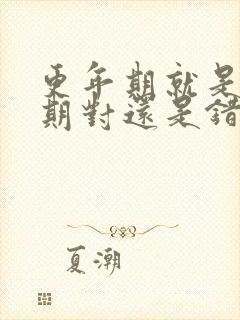 更年期就是
期對還是錯
夏潮